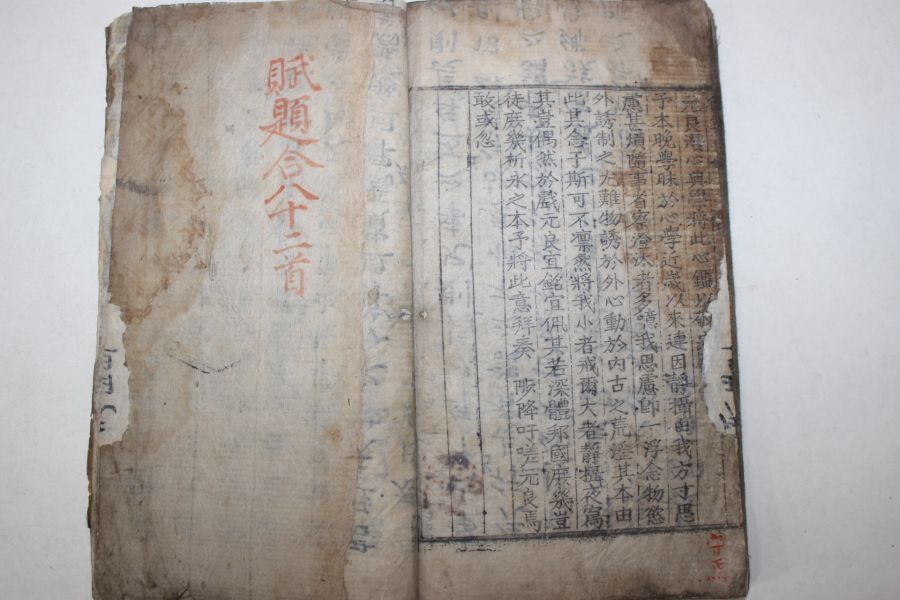 元良澄心典學將此心鑑以
予本晩學昧於心學近歲以來連因靜攝由我方寸思
慮其煩隨事省察澄汰者多噫我思慮卽一浮念物慾
外誘制之尤難物誘於外心動於內古之荒淫其本由
此其念于斯可不凛然將我小者戒爾大者靜攝夜寫
其豈偶然於戲元良宜銘宜佩其若深體邦國庶幾豈
徒庶幾祈永之本予將此意拜奏 陟降吁嗟元良焉
敢或忽
賦題合八十二首